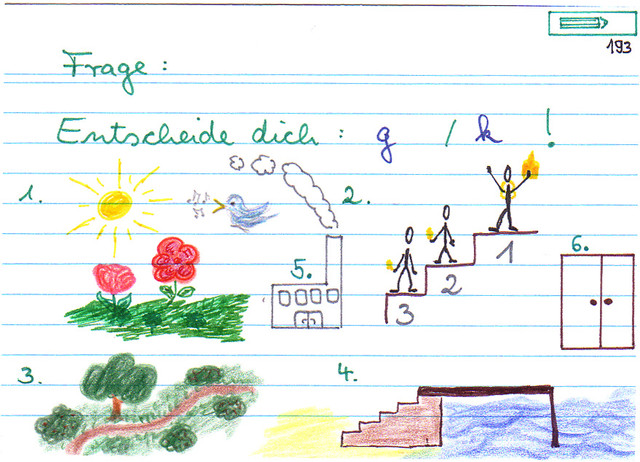 193
Frage :
Entscheide dich : g / k !
1.
2.
1
2
3
5.
6.
3.
4.